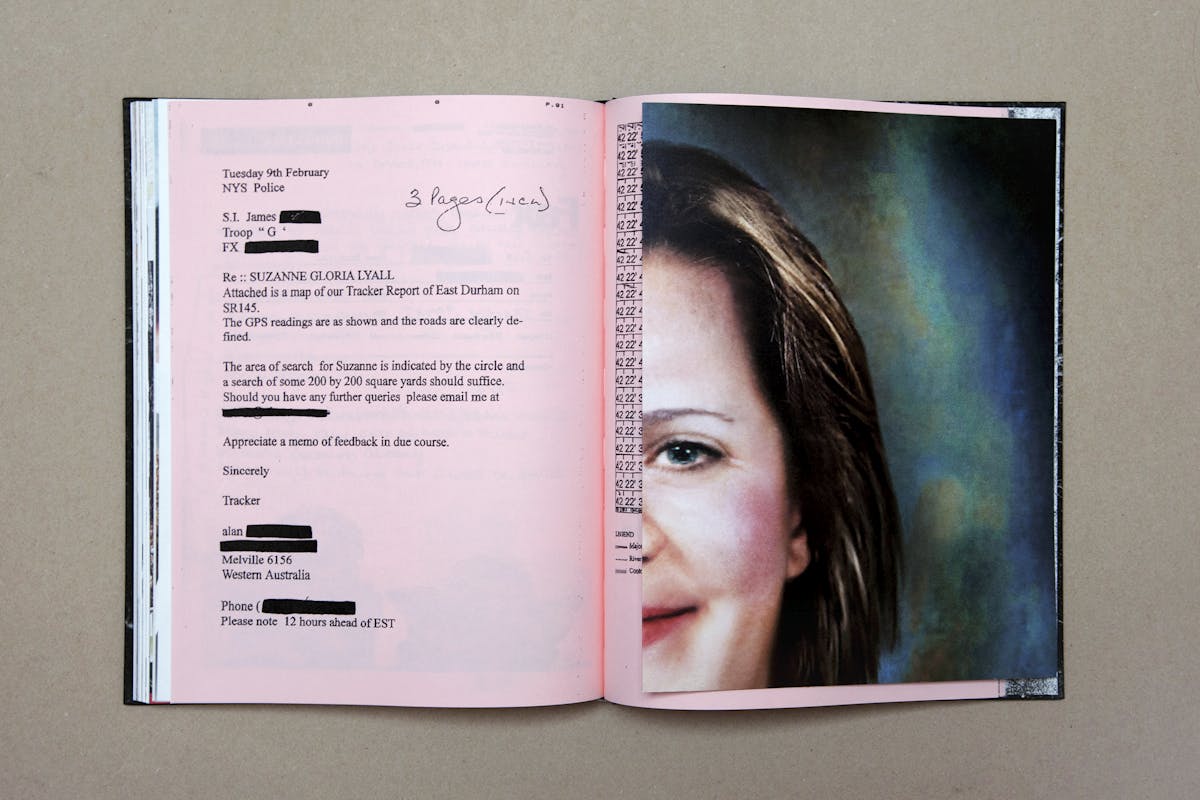 P.01
Tuesday 9th February
NYS Police
3 Pages (
S.I. James
Troop “ G ‘
FX
Re :: SUZANNE GLORIA LYALL
Attached is a map of our Tracker Report of East Durham on
SR145.
The GPS readings are as shown and the roads are clearly de-
fined.
The area of search for Suzanne is indicated by the circle and
a search of some 200 by 200 square yards should suffice.
Should you have any further queries please email me at
Appreciate a memo of feedback in due course.
Sincerely
Tracker
alan
Melville 6156
Western Australia
Phone (
Please note 12 hours ahead of EST
42 22'
42 22'
42 22'
42 22'
42 22'
42 22' 4
42 22' 4
42 22' 4
42 22' 4
42 22' 4
42 22' 4
42 22' 4
42 22' 4
42 22' 4
42 22' 4
42 22' 4
42 22' 4
42 22' 4
42 22' 3
42 22' 3
42 22' 3
42 22' 3
42 22' 3
42 22' 3
LEGEND